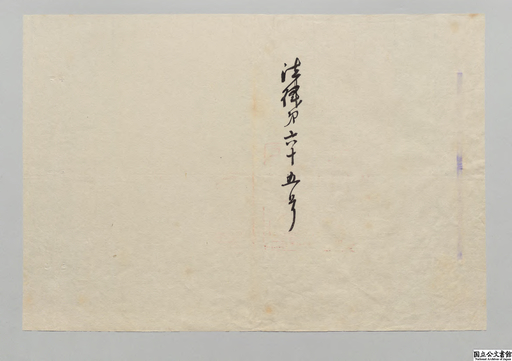 法律第六十五号
国立公文書館
National Archives of Japan